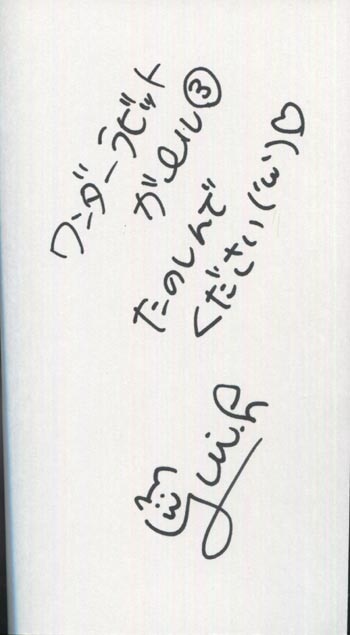 ワンダーラビット
ガール③
たのしんで
ください(´ω`)♡
yui.h